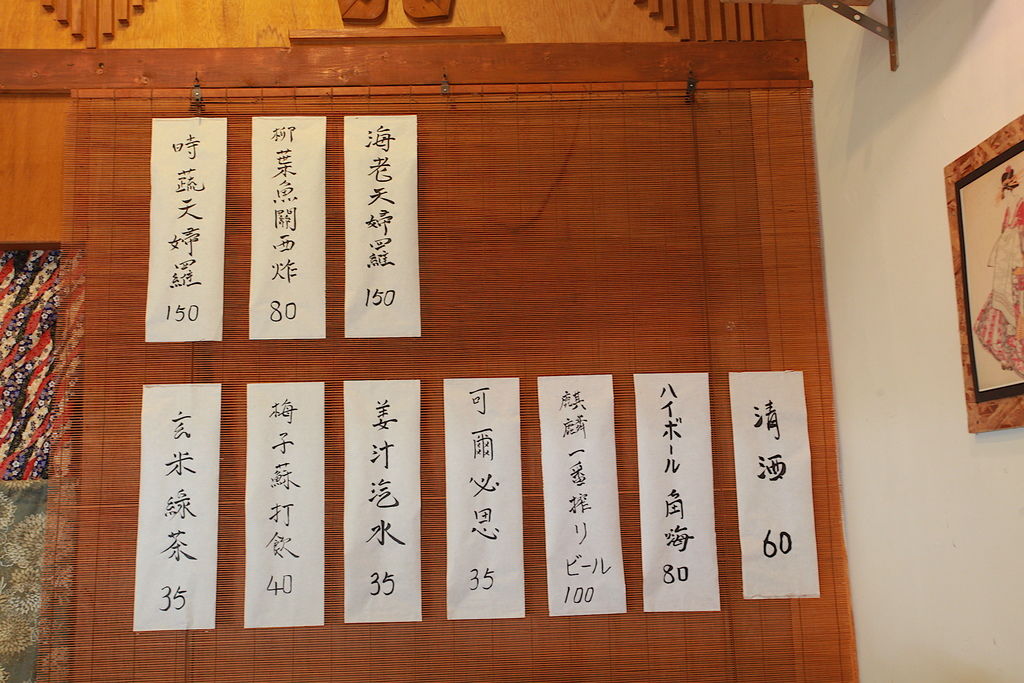 海老天婦羅
150
柳葉魚關西炸
80
時蔬天婦羅
150
清酒
60
ハイボール 角嗨
80
麒麟一番搾り
ビール
100
可爾必思
35
姜汁汽水
35
梅子蘇打飲
40
玄米綠茶
35